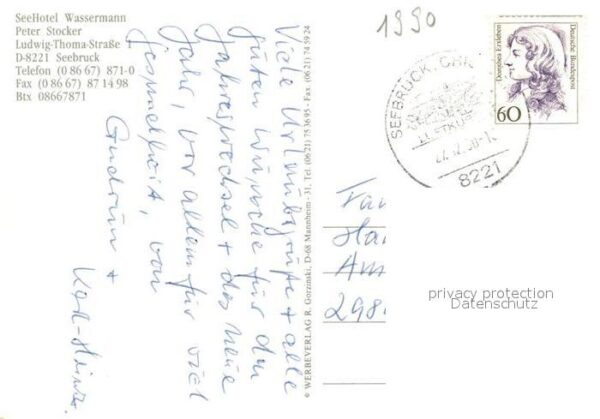 SeeHotel Wassermann
Peter Stocker
Ludwig-Thoma-Straße
D-8221 Seebruck
Telefon (0 86 67) 871-0
Fax (0 86 67) 87 14 98
Btx 08667871
1990
Dorothea Erxleben
Deutsche Bundespost
60
SEEBRUCK, CHIE
LUFTKU
27.12.90-1
8221
Viele Urlaubsgrüße + alle
guten Wünsche für den
Jahreswechsel + das neue
Jahr, vor allem für viel
Gesundheit, von
Gudrun +
Karl-Heinz.
© WERBEVERLAG R. Gorzinski, D-68 Mannheim - 31, Tel. (06 21) 75 36 95 - Fax. (06 21) 74 59 24
Fam
Ha
Am
298
privacy protection
Datenschutz